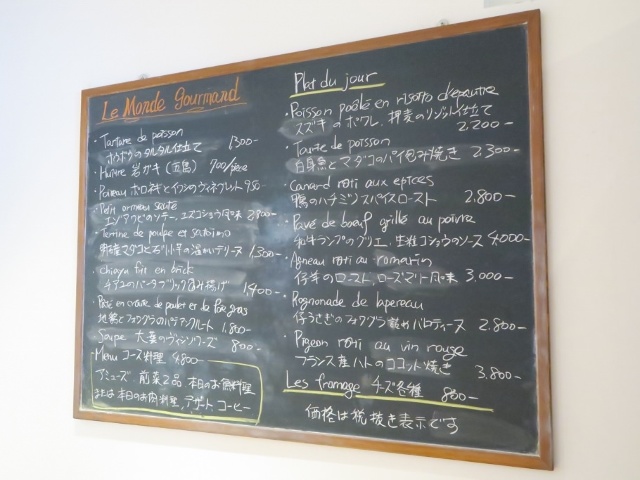 Le Monde Gourmand
・Tartare de poisson
ホウボウのタルタル仕立て 1300-
・Huitre 岩ガキ(五島) 700/pièce
・Poireau ポロネギとイワシのヴィネグレット 950-
・Petit ormeau sauté
エゾアワビのソテー、ユズコショウ風味 2900-
・Terrine de poulpe et satoimo
マダコと石川芋の温かいテリーヌ 1,300-
en brick
包み揚げ 1,400-
・Pâté en croute de poulet et de foie gras
地鶏とフォワグラのパテアンクルート 1.800-
・Soupe 大葉のヴィシソワーズ 800-
・Menu コース料理 4,800-
アミューズ 前菜2品 本日のお魚料理
または本日のお肉料理、デザート コーヒー
Plat du jour
・Poisson poêlé en risotto d'épeautre
スズキのポワレ、押麦のリゾット仕立て 2,200-
・Tourte de poisson
白身魚とマダコのパイ包み焼き 2.300-
・Canard roti aux epices
鴨のハチミツスパイスロースト 2.800-
・Pavé de bœuf grillé au poivre
和牛ランプのグリエ、生粒コショウのソース 4,000-
・Agneau roti au romarin
仔羊のロースト、ローズマリー風味 3,000-
・Rognonade de lapereau
仔うさぎのフォワグラ バロティーヌ 2.800-
・Pigeon roti au vin rouge
フランス産ハトのココット焼き 3.800-
Les fromage チーズ各種 800-
価格は税抜き表示です